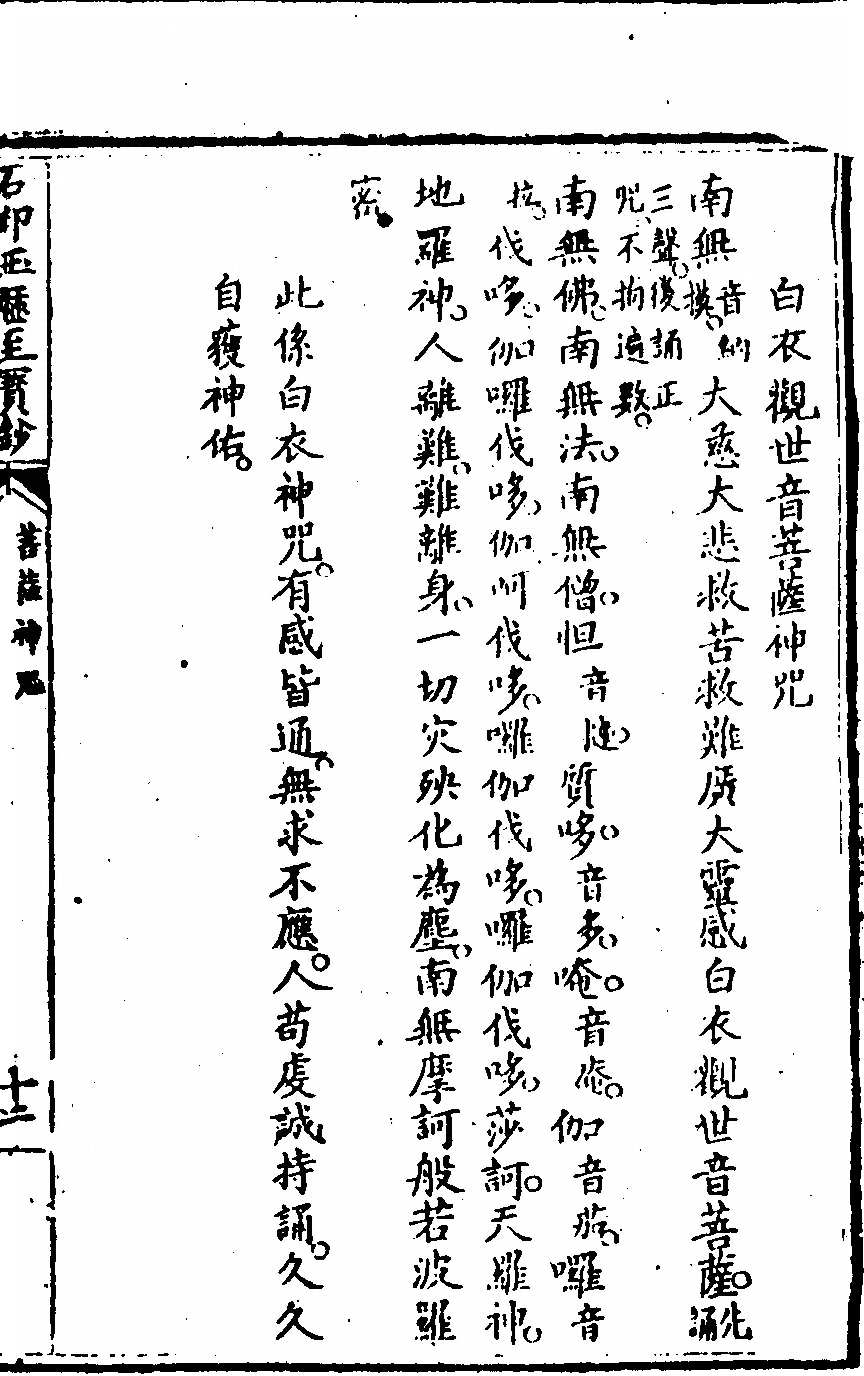 白衣觀世音菩薩神咒
南無音納摸。大慈大悲救苦救難廣大靈感白衣觀世音菩薩。先誦
三聲。後誦正
咒、不拘遍數。
南無佛。南無法。南無僧。怛音達。質哆。音多。唵。音庵。伽音茄。囉音
拉。伐哆。伽囉伐哆。伽呵伐哆。囉伽伐哆。囉伽伐哆。莎訶。天羅神。
地羅神。人離難。難離身。一切灾殃化為塵。南無摩訶般若波羅
密。
此係白衣神咒。有感皆通。無求不應。人苟虔誠持誦。久久
自獲神佑。
石印玉歷至寶鈔
菩薩神咒
十二